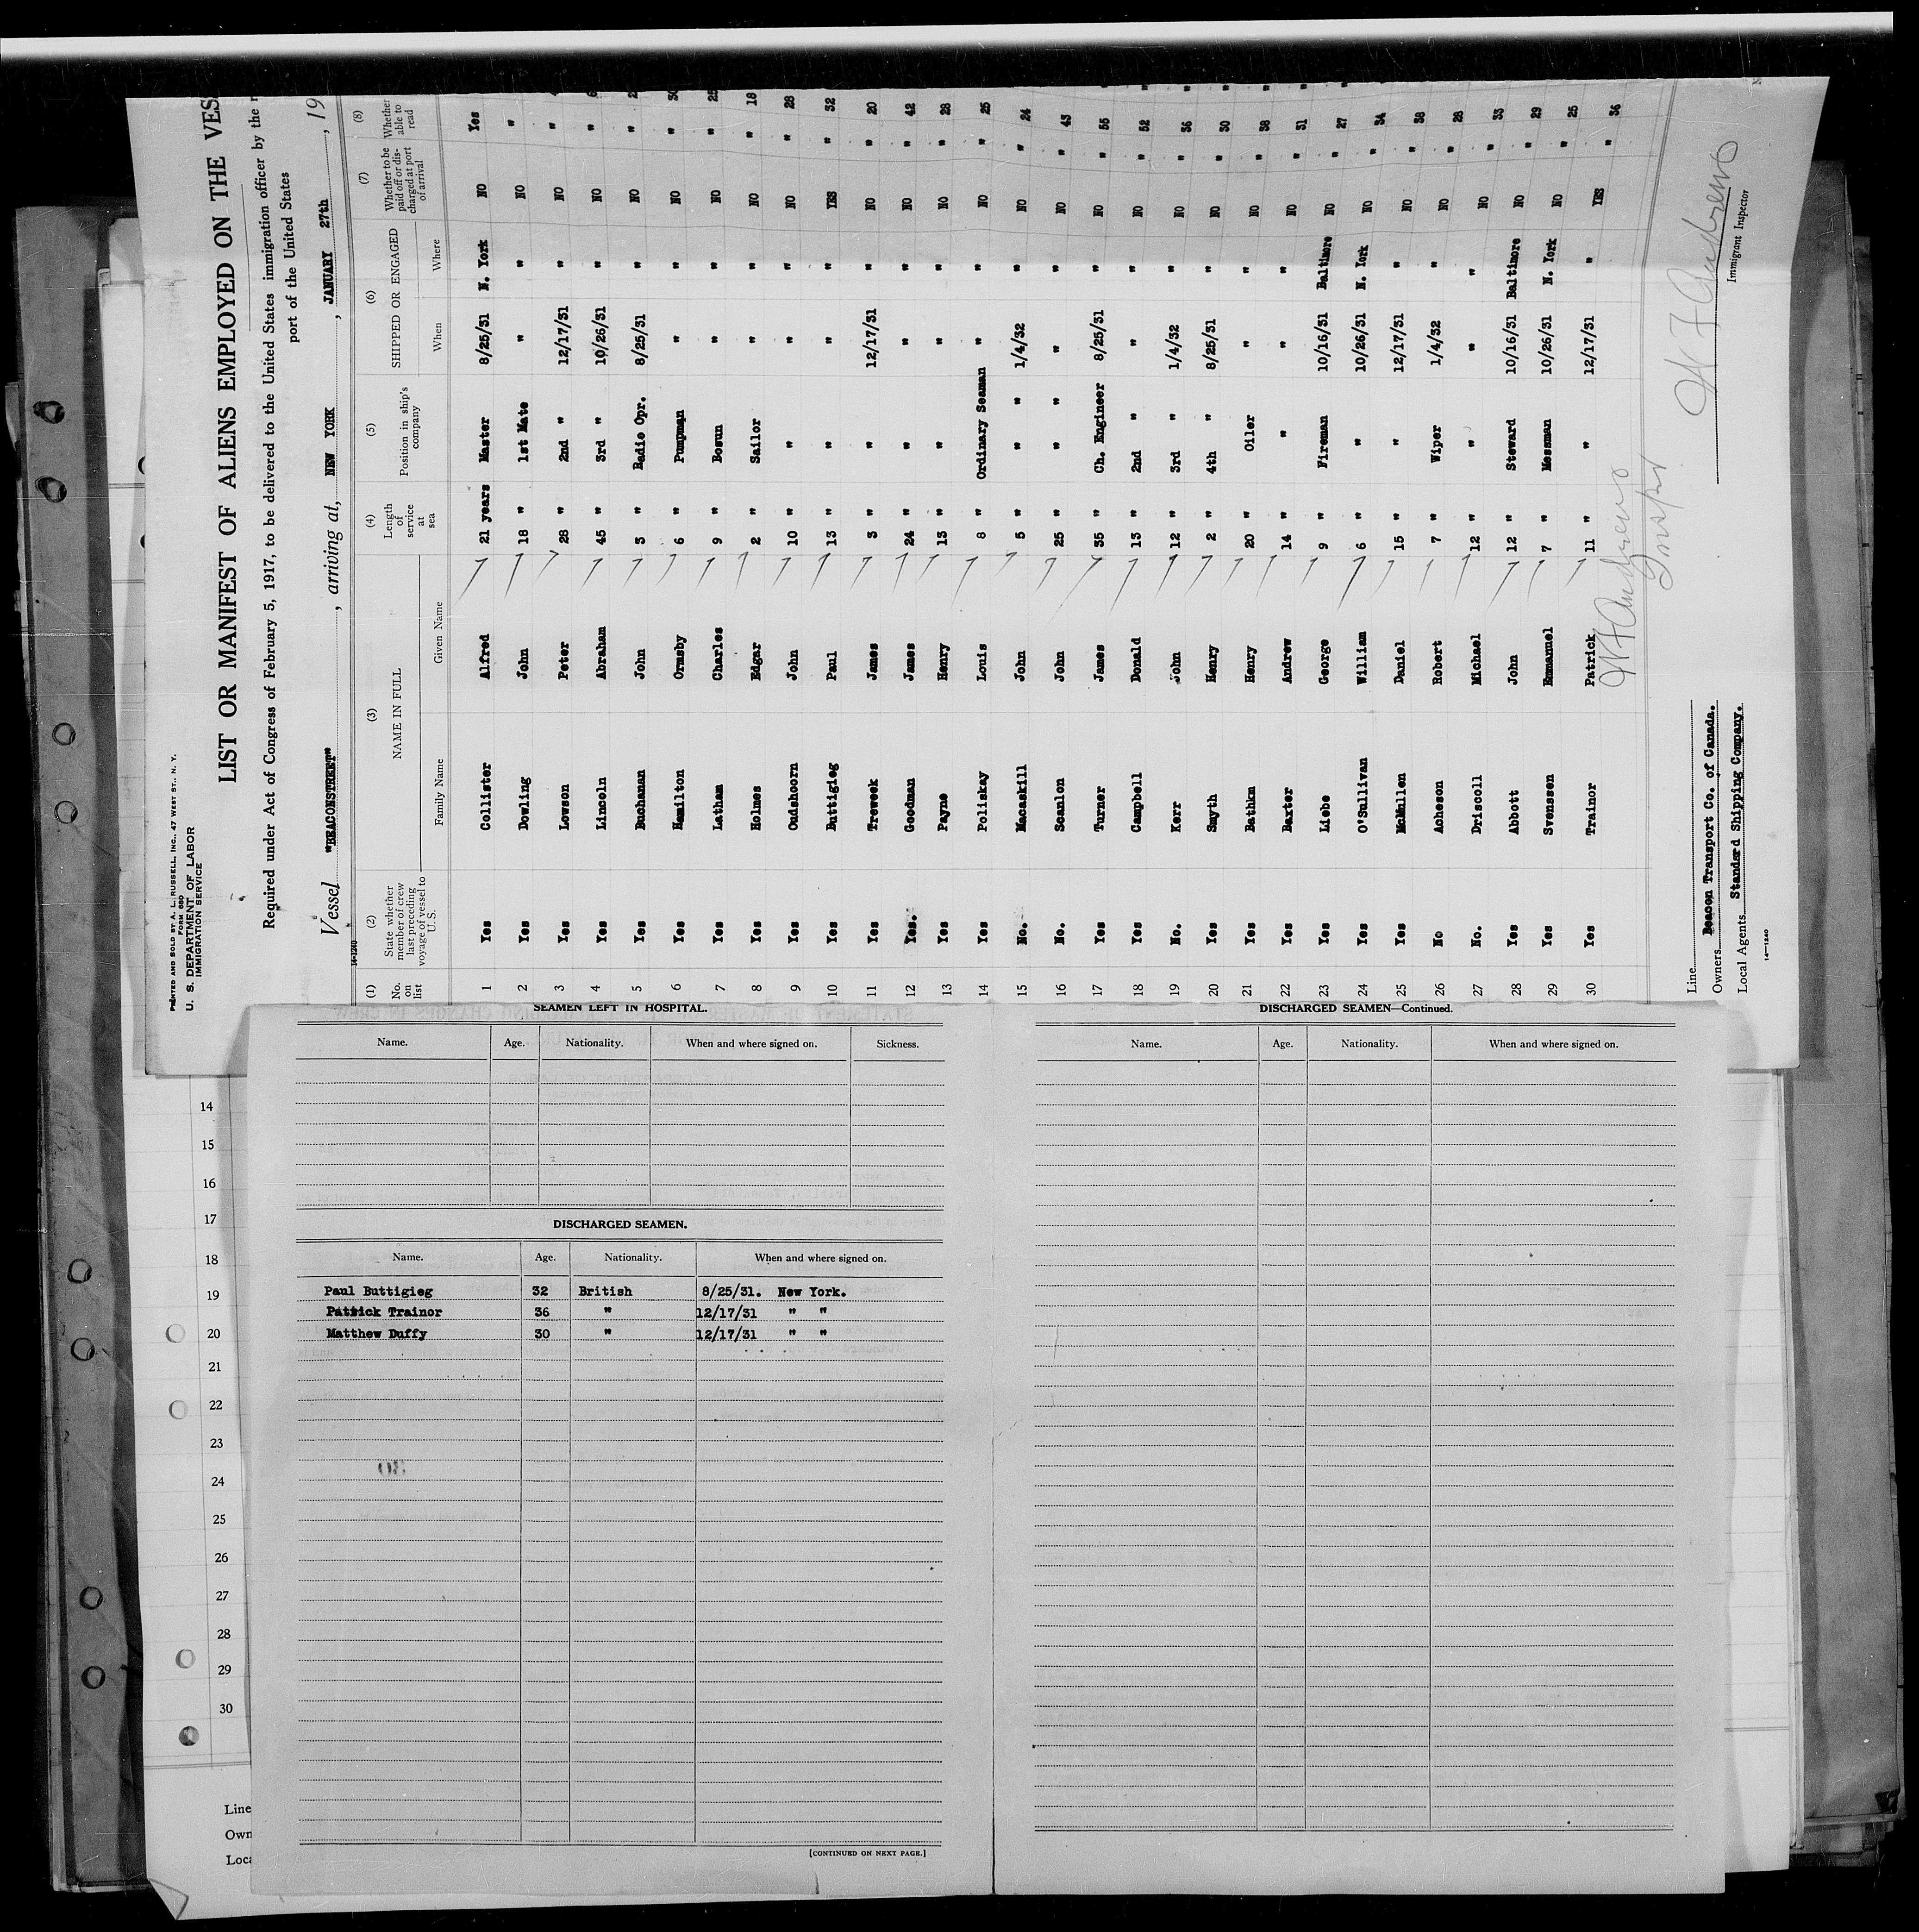 PRINTED AND SOLD BY A. L. RUSSELL, INC., 47 WEST ST., N. Y.
FORM 680
U. S. DEPARTMENT OF LABOR
IMMIGRATION SERVICE
LIST OR MANIFEST OF ALIENS EMPLOYED ON THE VES
Required under Act of Congress of February 5, 1917, to be delivered to the United States immigration officer by the r
port of the United States
Vessel "BEACONSTREET", arriving at, NEW YORK, JANUARY 27th, 19
14-1240
(1) (2) (3) (4) (5) (6) (7) (8)
No. on list State whether member of crew last preceding voyage of vessel to U.S. NAME IN FULL Family Name Given Name Length of service at sea Position in ship's company SHIPPED OR ENGAGED When Where Whether to be paid off or discharged at port of arrival Whether able to read
1 Yes Collister Alfred 21 years Master 8/25/31 N. York NO Yes
2 Yes Dowling John 18 " 1st Mate " " NO "
3 Yes Lowson Peter 28 " 2nd " 12/17/31 " NO " 4
4 Yes Lincoln Abraham 45 " 3rd " 10/26/31 " NO " 6
5 Yes Buchanan John 3 " Radio Opr. 8/25/31 " NO " 2
6 Yes Hamilton Ormsby 6 " Pumpman " " NO " 30
7 Yes Latham Charles 9 " Bosun " " NO " 25
8 Yes Holmes Edgar 2 " Sailor " " NO " 18
9 Yes Oudshoorn John 10 " " " " NO " 28
10 Yes Buttigieg Paul 13 " " " " YES " 32
11 Yes Treweek James 3 " " 12/17/31 " NO " 20
12 Yes. Goodman James 24 " " " " NO " 42
13 Yes Payne Henry 13 " " " " NO " 28
14 Yes Poliskay Louis 8 " Ordinary Seaman " " NO " 25
15 No. Macaskill John 5 " " " 1/4/32 " NO " 24
16 No. Scanlon John 25 " " " " " NO " 43
17 Yes Turner James 35 " Ch. Engineer 8/25/31 " NO " 55
18 Yes Campbell Donald 13 " 2nd " " " NO " 52
19 No. Kerr John 12 " 3rd " 1/4/32 " NO " 36
20 Yes Smyth Henry 2 " 4th " 8/25/31 " NO " 30
21 Yes Rathkm Henry 20 " Oiler " " NO " 38
22 Yes Baxter Andrew 14 " " " " NO " 31
23 Yes Liebe George 9 " Fireman 10/16/31 Baltimore NO " 27
24 Yes O'Sullivan William 6 " " 10/26/31 N. York NO " 34
25 Yes McMullen Daniel 15 " " 12/17/31 " NO " 38
26 No Acheson Robert 7 " Wiper 1/4/32 " NO " 28
27 No. Driscoll Michael 12 " " " " NO " 33
28 Yes Abbott John 12 " Steward 10/16/31 Baltimore NO " 29
29 Yes Svenssen Emmanuel 7 " Messman 10/26/31 N. York NO " 25
30 Yes Trainor Patrick 11 " " 12/17/31 " YES " 36
W F Andrews
Inspector
Line
Owners Beacon Transport Co. of Canada.
Local Agents Standard Shipping Company.
14-1240
W F Andrews
Immigrant Inspector
SEAMEN LEFT IN HOSPITAL.
Name. Age. Nationality. When and where signed on. Sickness.
DISCHARGED SEAMEN.
Name. Age. Nationality. When and where signed on.
Paul Buttigieg 32 British 8/25/31. New York.
Patrick Trainor 36 " 12/17/31 " "
Matthew Duffy 30 " 12/17/31 " "
[CONTINUED ON NEXT PAGE.]
DISCHARGED SEAMEN—Continued.
Name. Age. Nationality. When and where signed on.
14
15
16
17
18
19
20
21
22
23
24
25
26
27
28
29
30
Line
Own
Loca